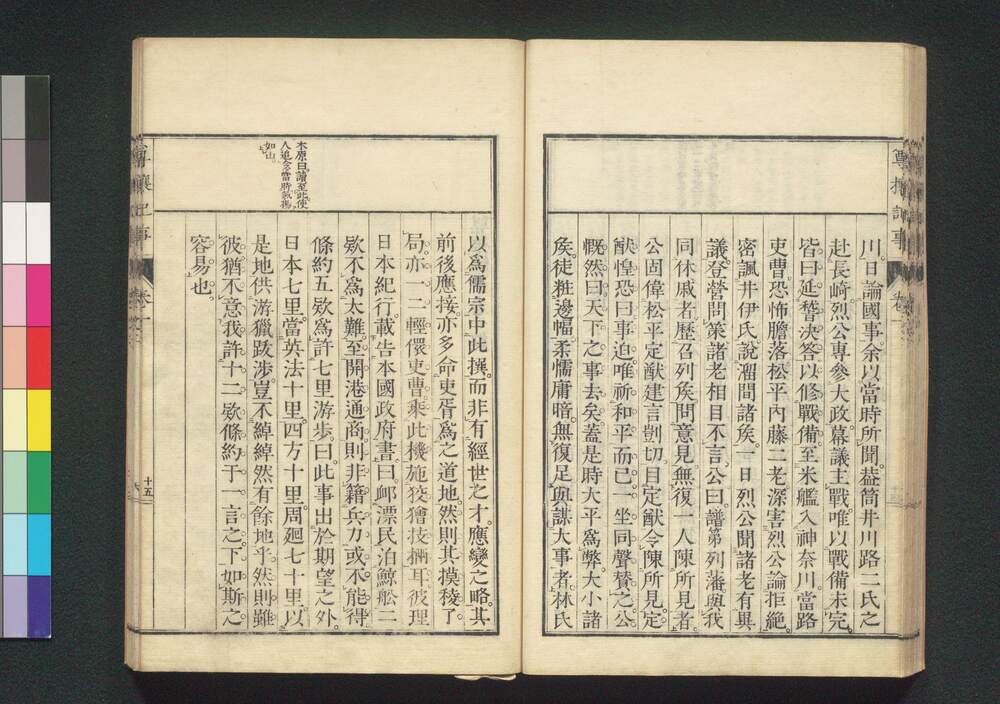 川日論國事余以當時所聞葢筒井川路二氏之
赴長崎烈公專參大政幕議主戰唯以戰備未完
皆曰延誓決答以修戰備至米艦入神奈川當路
吏曹恐怖膽落松平內藤二老深害烈公論拒絕
密諷井伊氏說溜間諸矦一日烈公聞諸老有異
議登營問策諸老相目不言公曰譜第列藩與我
同休戚者歷召列矦問意見無復一人陳所見者
公固偉松平定猷建言剴切目定猷令陳所見定
猷惶恐曰事迫唯祈和平而已一坐同聲賛之公
慨然曰天下之事去矣葢是時大平爲弊大小諸
矦徒粧邊幅柔懦庸暗無復足與謀大事者林氏
尊攘記事
以爲儒宗中此撰而非有經世之才應變之略其
前後應接亦多命吏胥爲之道地然則其摸稜了
局亦一二輕儇吏曹乘此機施狡獪技擱耳彼理
日本紀行載告本國政府書曰邺漂民泊鯨舩二
欵不爲太難至開港通商則非籍兵力或不能得
條約五欵爲許七里游步曰此事出於期望之外
日本七里當英法十里四方十里周廻七十里以
是地供游獵跋涉豈不綽綽然有餘地乎然則雖
彼猶不意我許十二欵條約于一言之下如斯之
容易也
木原曰讀至此使
人追念當時氣
如山
尊攘記事
卷一
十五